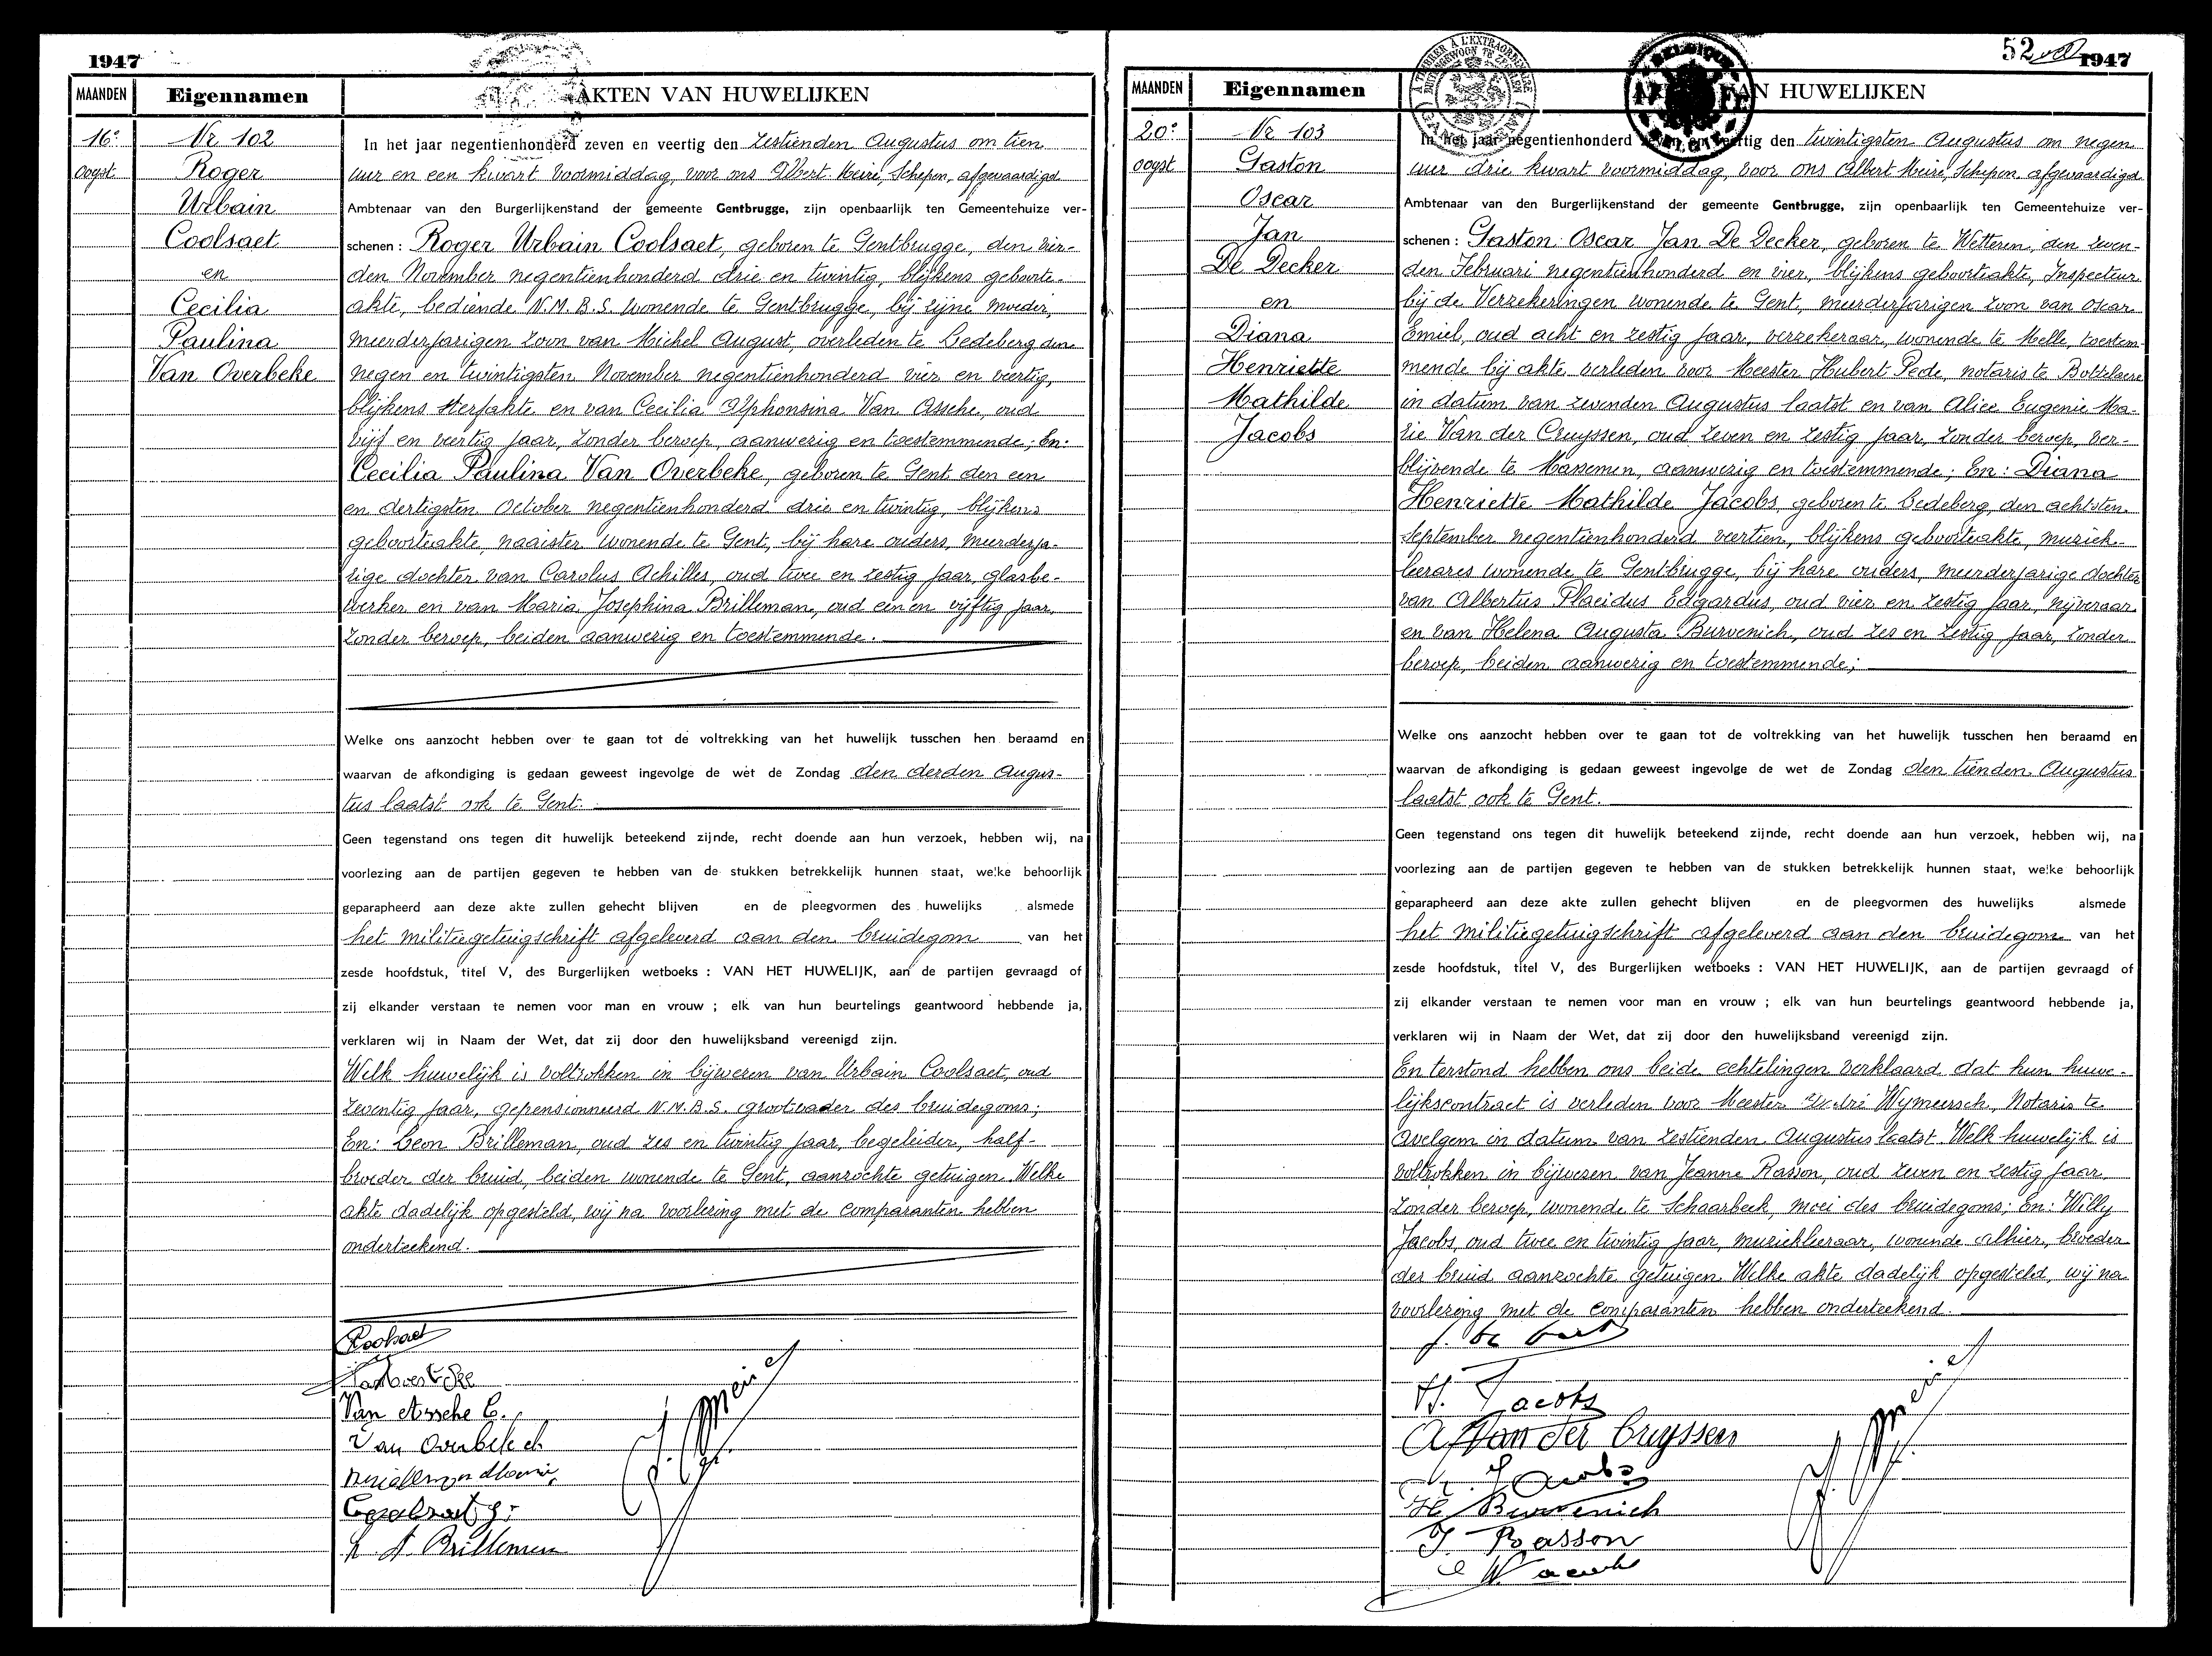 1947
MAANDEN
Eigennamen
AKTEN VAN HUWELIJKEN
16e
oogst
Nr 102
Roger
Urbain
Coolsaet
en
Cecilia
Paulina
Van Overbeke
In het jaar negentienhonderd zeven en veertig den zestienden Augustus om tien
uur en een kwart voormiddag, voor ons Albert Meiri, Schepen, afgevaardigd
Ambtenaar van den Burgerlijkenstand der gemeente Gentbrugge, zijn openbaarlijk ten Gemeentehuize ver-
schenen : Roger Urbain Coolsaet, geboren te Gentbrugge, den vier-
den November negentienhonderd drie en twintig, blijkens geboorte-
akte, bediende N.M.B.S. wonende te Gentbrugge, bij zijne moeder,
meerderjarigen zoon van Michel August, overleden te Ledeberg den
negen en twintigsten November negentienhonderd vier en veertig,
blijkens sterfakte en van Cecilia Alphonsina Van Assche, oud
vijf en veertig jaar, zonder beroep, aanwezig en toestemmende; En:
Cecilia Paulina Van Overbeke, geboren te Gent den een
en dertigsten October negentienhonderd drie en twintig, blijkens
geboorteakte, naaister wonende te Gent, bij hare ouders, meerderja-
rige dochter van Carolus Achilles, oud twee en zestig jaar, glasbe-
werker en van Maria Josephina Brilleman, oud een en vijftig jaar,
zonder beroep, beiden aanwezig en toestemmende.
Welke ons aanzocht hebben over te gaan tot de voltrekking van het huwelijk tusschen hen beraamd en
waarvan de afkondiging is gedaan geweest ingevolge de wet de Zondag den derden Augus-
tus laatst ook te Gent.
Geen tegenstand ons tegen dit huwelijk beteekend zijnde, recht doende aan hun verzoek, hebben wij, na
voorlezing aan de partijen gegeven te hebben van de stukken betrekkelijk hunnen staat, welke behoorlijk
geparapheerd aan deze akte zullen gehecht blijven en de pleegvormen des huwelijks alsmede
het militiegetuigschrift afgeleverd aan den bruidegom van het
zesde hoofdstuk, titel V, des Burgerlijken wetboeks : VAN HET HUWELIJK, aan de partijen gevraagd of
zij elkander verstaan te nemen voor man en vrouw ; elk van hun beurtelings geantwoord hebbende ja,
verklaren wij in Naam der Wet, dat zij door den huwelijksband vereenigd zijn.
Welk huwelijk is voltrokken in bijwezen van Urbain Coolsaet, oud
zeventig jaar, gepensionneerd N.M.B.S. grootvader des bruidegoms;
En: Leon Brilleman, oud zes en twintig jaar, begeleider, half-
broeder der bruid, beiden wonende te Gent, aanzochte getuigen. Welke
akte dadelijk opgesteld, wij na voorlezing met de comparanten hebben
onderteekend.
RCoolsaet
Van Assche C.
Van Overbeke ch
L. A. Brilleman
52 1947
MAANDEN
Eigennamen
AN HUWELIJKEN
20e
oogst
Nr 103
Gaston
Oscar
Jan
De Decker
en
Diana
Henriette
Mathilde
Jacobs
In het jaar negentienhonderd zeven en veertig den twintigsten Augustus om negen
uur drie kwart voormiddag, voor ons Albert Meiri, Schepen, afgevaardigd
Ambtenaar van den Burgerlijkenstand der gemeente Gentbrugge, zijn openbaarlijk ten Gemeentehuize ver-
schenen : Gaston Oscar Jan De Decker, geboren te Wetteren, den zeven-
den Februari negentienhonderd en vier, blijkens geboorteakte, Inspecteur
bij de Verzekeringen wonende te Gent, meerderjarigen zoon van Oscar
Emiel, oud acht en zestig jaar, verzekeraar, wonende te Melle, toestem-
mende bij akte verleden voor Meester Hubert Pede, notaris te Bottelaere
in datum van zevenden Augustus laatst en van Alice Eugenie Ma-
rie Van der Cruyssen, oud zeven en zestig jaar, zonder beroep, ver-
blijvende te Massemen, aanwezig en toestemmende; En: Diana
Henriette Mathilde Jacobs, geboren te Ledeberg, den achtsten
September negentienhonderd veertien, blijkens geboorteakte, muziek-
leerares wonende te Gentbrugge, bij hare ouders, meerderjarige dochter
van Albertus Placidus Edgardus, oud vier en zestig jaar, nijveraar
en van Helena Augusta Burvenich, oud zes en zestig jaar, zonder
beroep, beiden aanwezig en toestemmende;
Welke ons aanzocht hebben over te gaan tot de voltrekking van het huwelijk tusschen hen beraamd en
waarvan de afkondiging is gedaan geweest ingevolge de wet de Zondag den tienden Augustus
laatst ook te Gent.
Geen tegenstand ons tegen dit huwelijk beteekend zijnde, recht doende aan hun verzoek, hebben wij, na
voorlezing aan de partijen gegeven te hebben van de stukken betrekkelijk hunnen staat, welke behoorlijk
geparapheerd aan deze akte zullen gehecht blijven en de pleegvormen des huwelijks alsmede
het militiegetuigschrift afgeleverd aan den bruidegom van het
zesde hoofdstuk, titel V, des Burgerlijken wetboeks : VAN HET HUWELIJK, aan de partijen gevraagd of
zij elkander verstaan te nemen voor man en vrouw ; elk van hun beurtelings geantwoord hebbende ja,
verklaren wij in Naam der Wet, dat zij door den huwelijksband vereenigd zijn.
En terstond hebben ons beide echtelingen verklaard dat hun huwe-
lijkscontract is verleden voor Meester Wymeersch, Notaris te
Avelgem in datum van zestienden Augustus laatst. Welk huwelijk is
voltrokken in bijwezen van Jeanne Rasson, oud zeven en zestig jaar,
zonder beroep, wonende te Schaarbeek, moei des bruidegoms; En: Willy
Jacobs, oud twee en twintig jaar, muziekleeraar, wonende alhier, broeder
der bruid aanzochte getuigen. Welke akte dadelijk opgesteld, wij na
voorlezing met de comparanten hebben onderteekend.
Jacobs
A Van der Cruyssen
Jacobs
H Burvenich
J Rasson